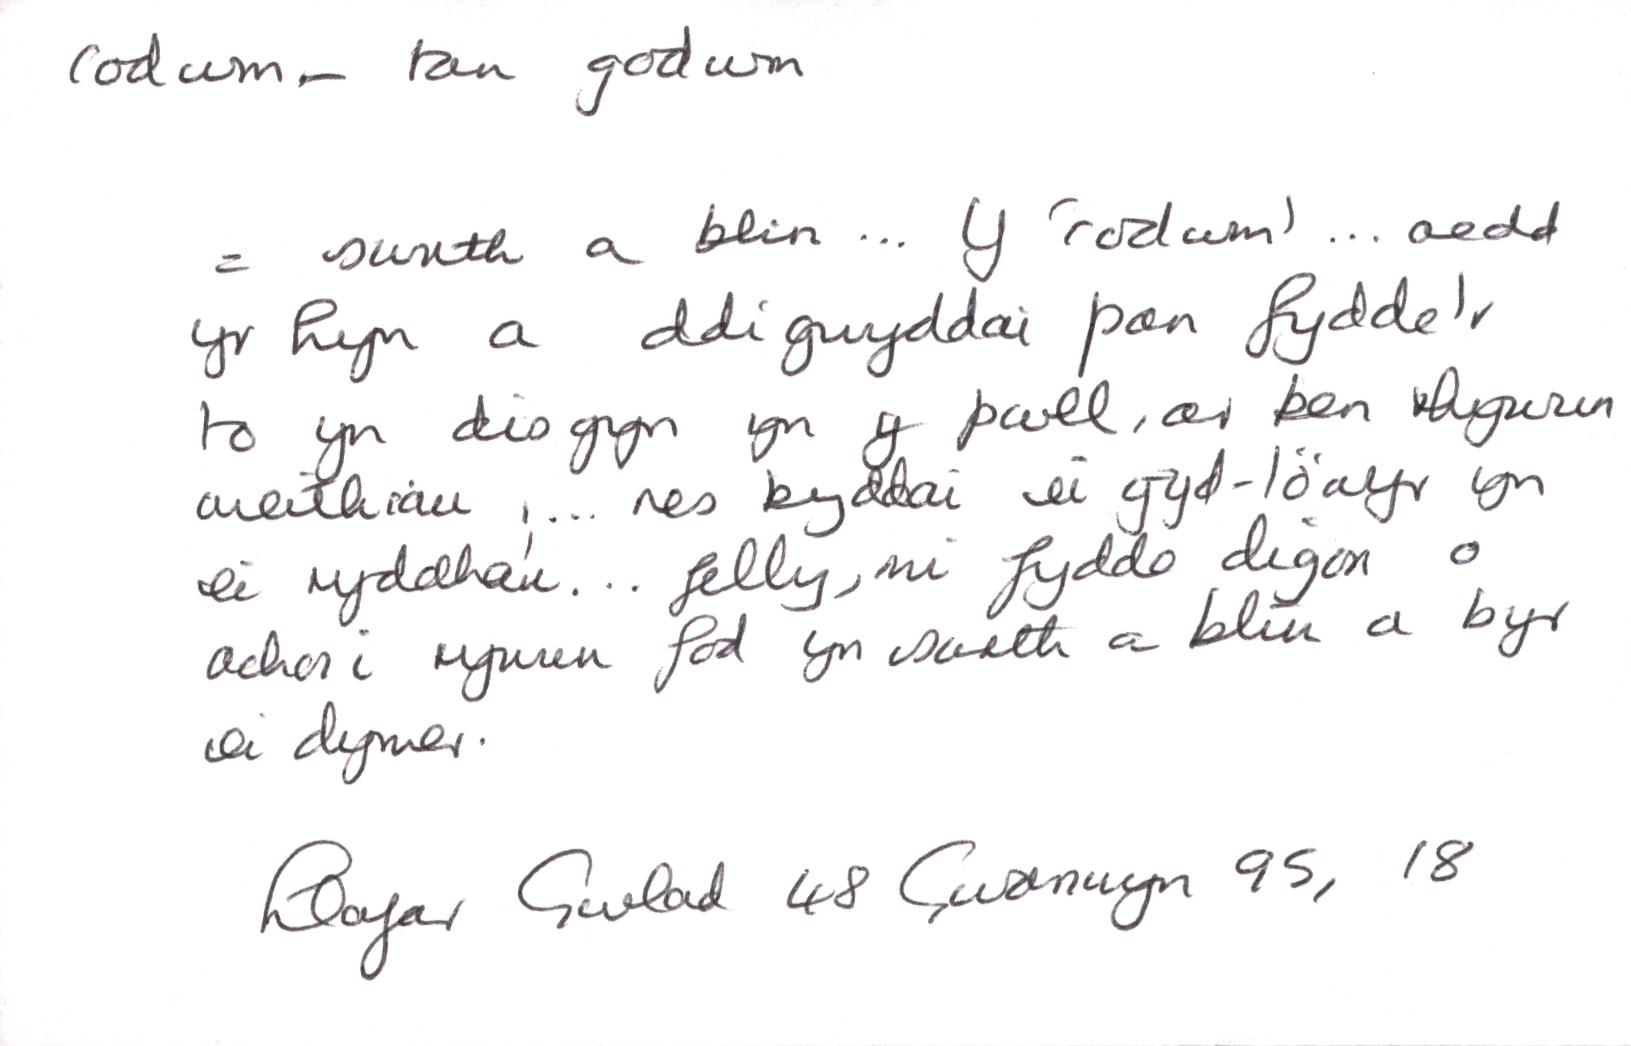 codwm – tan godwm
= swrth a blin ... Y 'codwm' ... oedd
yr hyn a ddigwyddai pan fydde'r
to yn disgyn yn y pwll, ar ben rhywun
weithiau, ... nes byddai ei gyd-löwyr yn
ei ryddhau. ... felly, ni fydde digon o
achos i rywun fod yn swrth a blin a byr
ei dymer.
Llafar Gwlad 48 Gwanwyn 95, 18